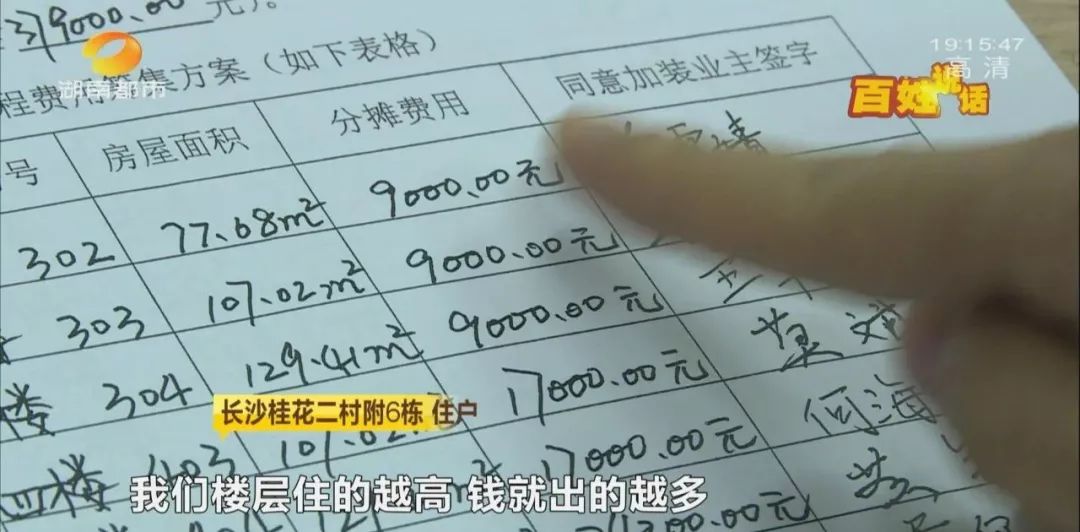 9000.00元)。
19:15:47
高清
湖南都市
百姓说话
程费用筹集方案(如下表格)
号 房屋面积 分摊费用 同意加装业主签字
302 77.68m² 9000.00元
303 107.02m² 9000.00元
楼 304 129.41m² 9000.00元
17000.00元
四楼 403 17000.00元 何海
长沙桂花二村附6栋 住户
我们楼层住的越高 钱就出的越多